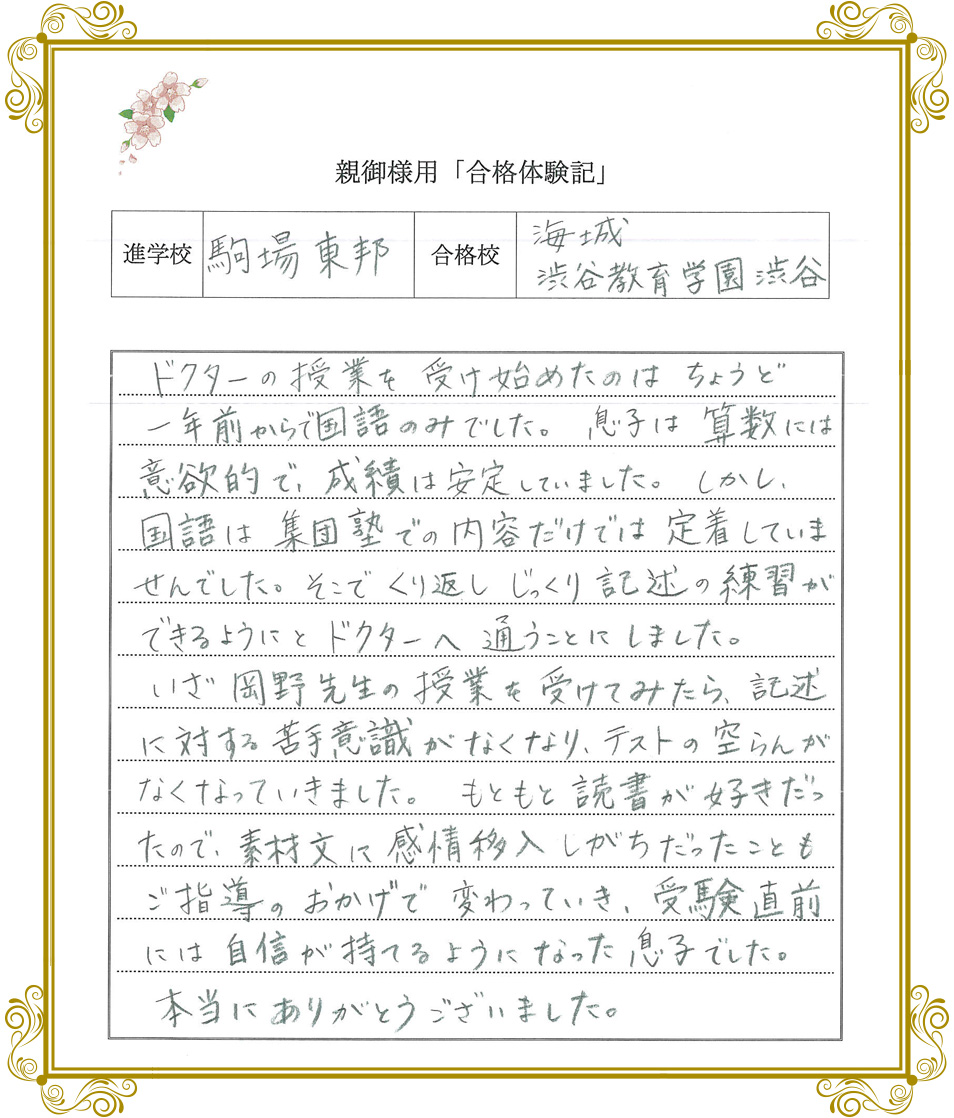 親御様用「合格体験記」
進学校 駒場東邦 合格校 海城
渋谷教育学園渋谷
ドクターの授業を受け始めたのはちょうど
一年前からで国語のみでした。息子は算数には
意欲的で、成績は安定していました。しかし、
国語は集団塾での内容だけでは定着していま
せんでした。そこでくり返しじっくり記述の練習が
できるようにとドクターへ通うことにしました。
いざ岡野先生の授業を受けてみたら、記述
に対する苦手意識がなくなり、テストの空らんが
なくなっていきました。もともと読書が好きだっ
たので、素材文に感情移入しがちだったことも
ご指導のおかげで変わっていき、受験直前
には自信が持てるようになった息子でした。
本当にありがとうございました。